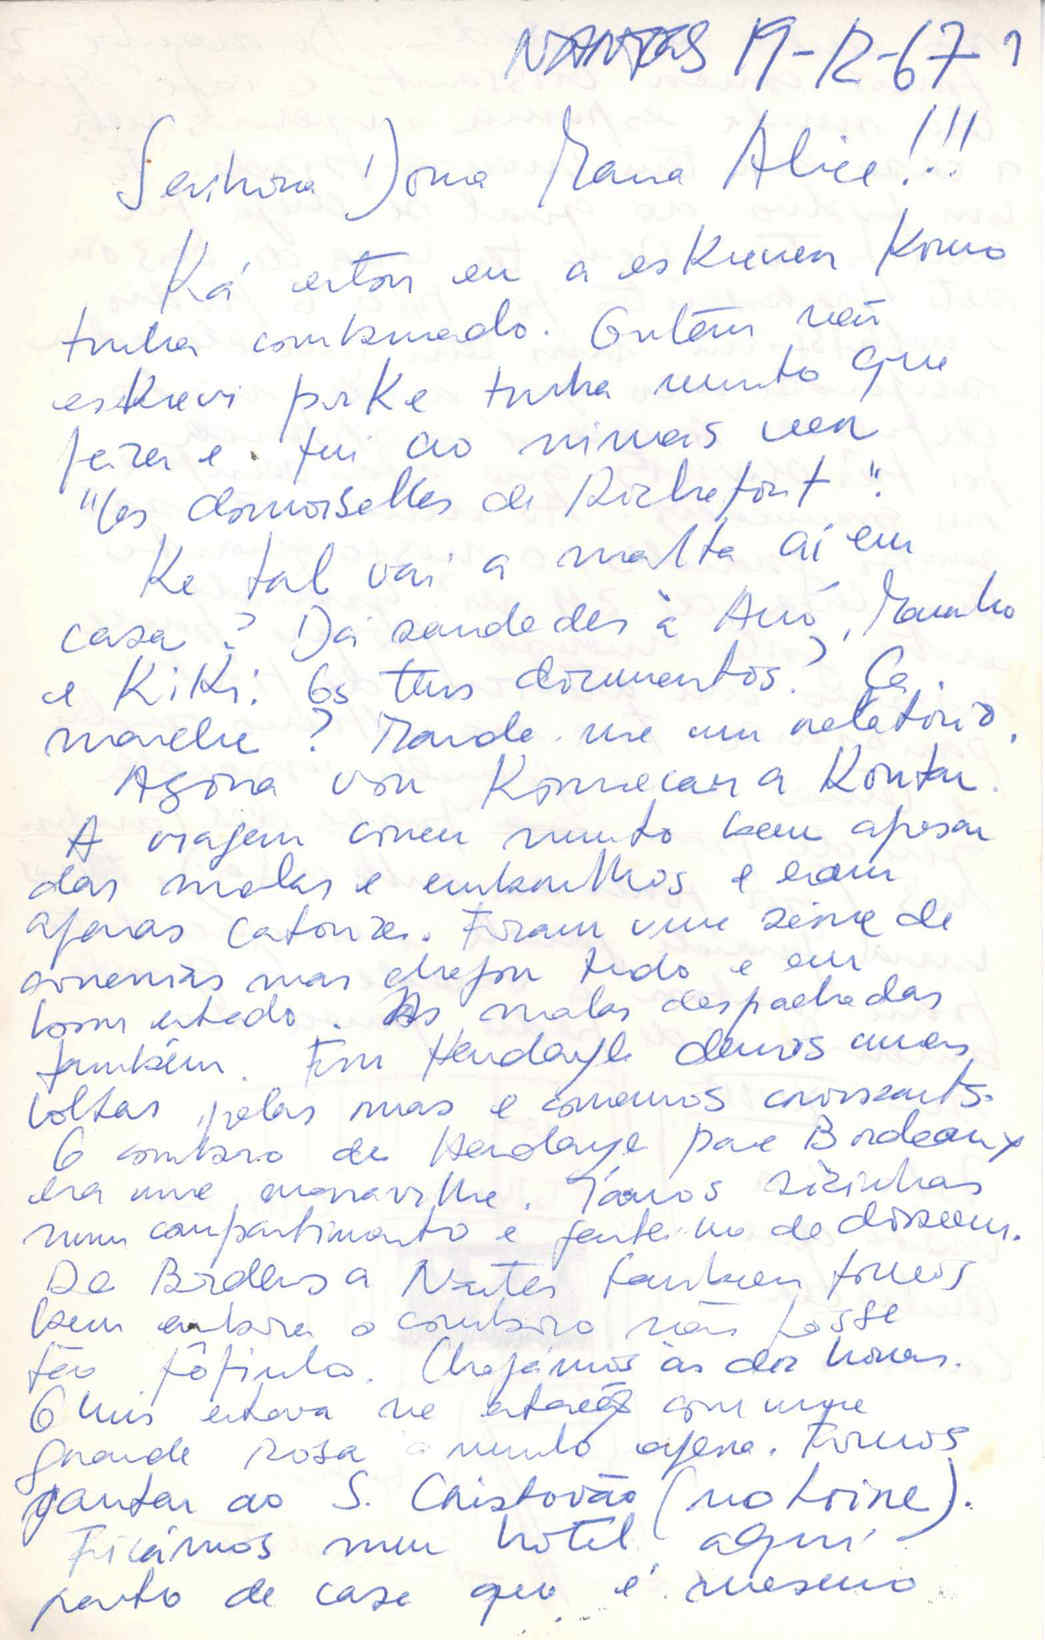 NANTES 19-12-67 1
Senhora Dona Maria Alice!!!
Ká estou eu a eskrever komo
tinha combinado. Ontem não
eskrevi porke tinha muito que
fazer e fui ao nimas ver
"les demoiselles de Rochefort".
Ke tal vai a malta aí em
casa? Dá saudades à Avó, Marinho
e Kiki. Os teus documentos? Ça
marche? Mande-me um relatório.
Agora vou Komeçar a Kontar.
A viagem correu muito bem apesar
das malas e embrulhos e eram
apenas catorze. Foram uma série de
correrias mas chegou tudo e em
bom estado. As malas despachadas
também. Em Hendaye demos umas
voltas pelas ruas e comemos croissants.
O comboio de Hendaye para Bordeaux
era uma maravilha. Íamos sòzinhas
num compartimento e
De Bordeus a Nantes também fomos
bem embora o comboio não fosse
tão fôfinho. Chegámos às dez horas.
O Luis estava na estação com uma
grande rosa à minha espera. Fomos
jantar ao S. Cristovão (na toine).
Ficámos num hotel aqui
perto de casa que é mesmo